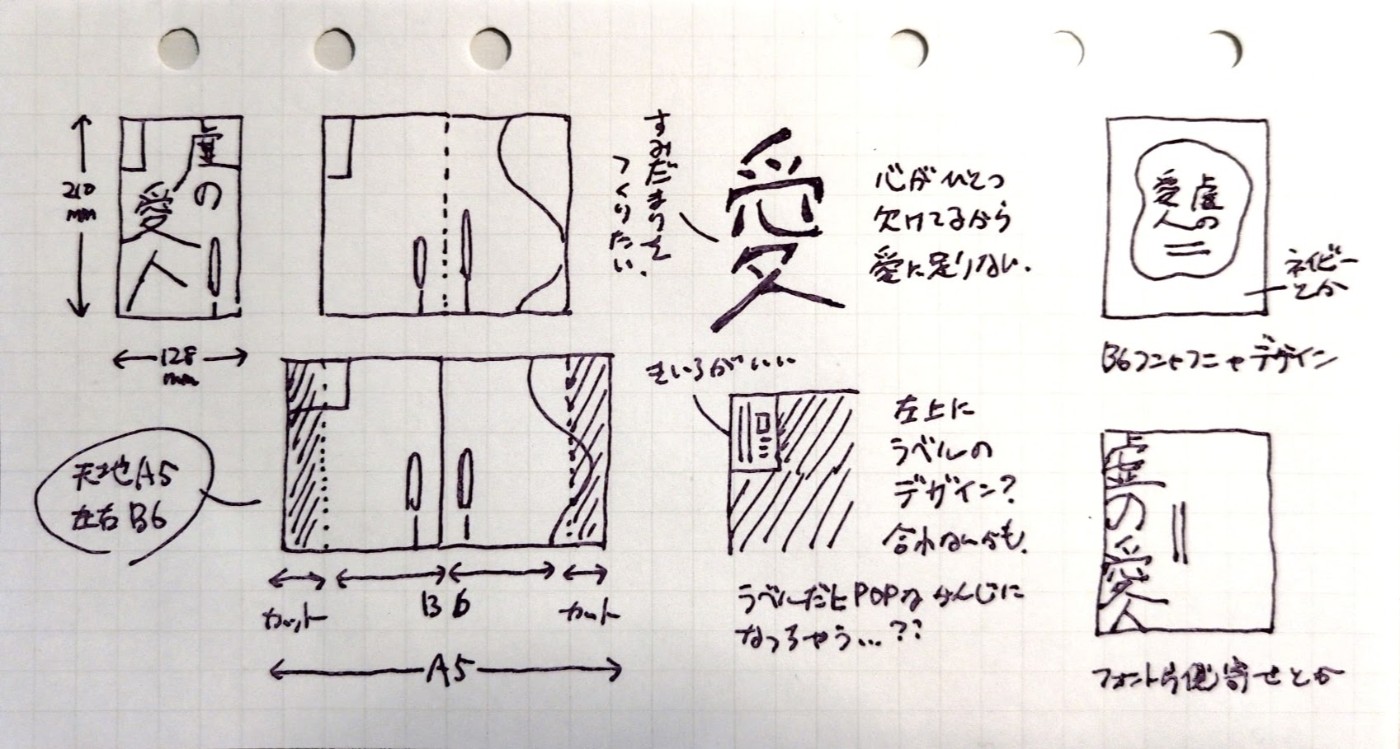 210
mm
128
mm
虚の
愛人
すみだまりを
つくりたい.
愛
心がひとつ
欠けてるから
愛に足りない.
虚の
愛人
ネイビー
とか
B6フニャフニャデザイン
天地A5
左右B6
カット
B6
カット
A5
きいろがいい
左上に
ラベルの
デザイン?
合わないかも.
ラベルだとPOPなかんじに
なっちゃう…??
虚の愛人
フォント片側寄せとか